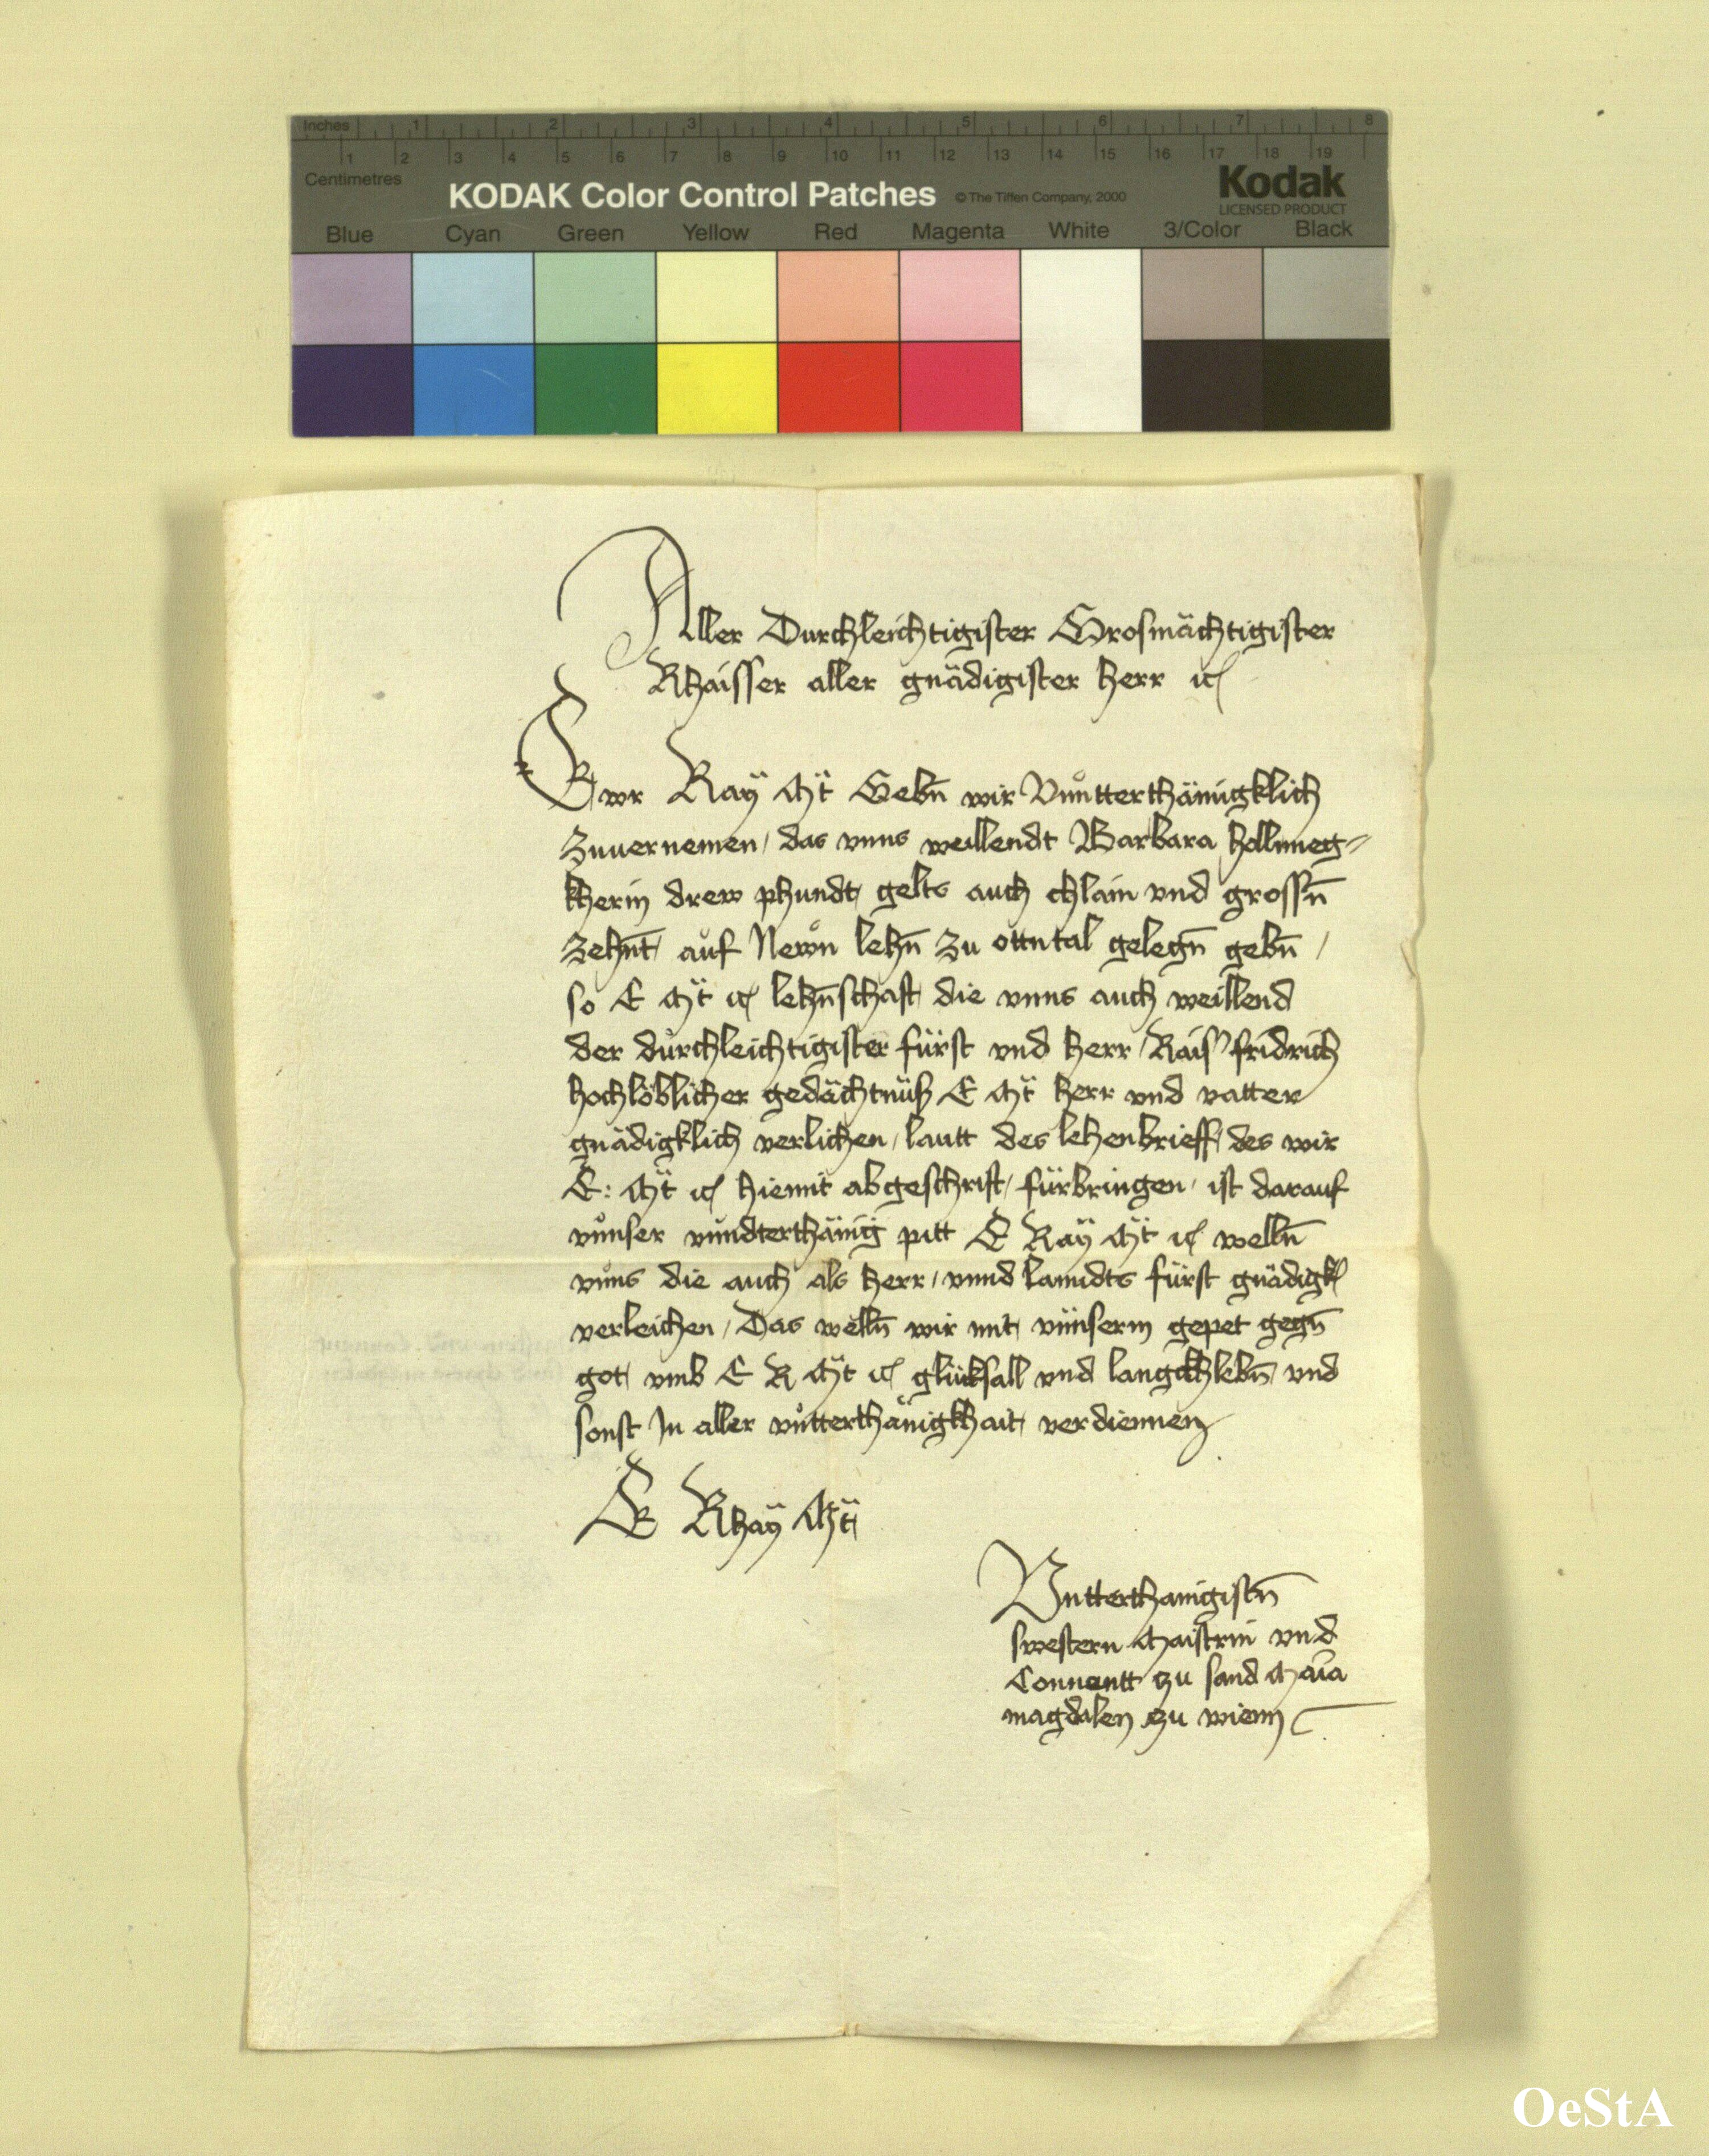 Inches 1 2 3 4 5 6 7 8
1 2 3 4 5 6 7 8 9 10 11 12 13 14 15 16 17 18 19
Centimetres
KODAK Color Control Patches © The Tiffen Company, 2000 Kodak
LICENSED PRODUCT
Blue Cyan Green Yellow Red Magenta White 3/Color Black
Aller Durchleichtigister Grosmächtigister
Khaisser aller gnädigister herr ꝛc
Ewr Kaÿ Mt̄ Gebn̄ wir Vnntterthänigklich
Zuuernemen / das vnns weillendt Barbara hollnneg⸗
kherin drew phundt gelts auch chlain vnd grossn̄
Zehnt̄ auf Newn lehn̄ Zu ottntal gelegn̄ gebn̄ /
so E Mt̄ ꝛc lehn̄schafft die vnns auch weillend
der durchleichtigister fürst vnd herr / Kais' fridrich
hochlöblicher gedächtnüß E Mt̄ herr vnd vatter
gnädigklich verlichen / lautt des lehenbrieff des wir
E: Mt̄ ꝛc hiemit abgeschrift / fürbringen / ist darauf
vnnser vnndterthänig pitt E Kaÿ Mt̄ ꝛc welln̄
vnns die auch als herr / vnnd lanndts fürst gnädigkl
verleichen / Das welln̄ wir mit vnnserm gepet gegn̄
got vmb E K Mt̄ ꝛc glücksall vnd langckhlebn̄ vnd
sonst In aller vntterthänigkhait verdiennen
E Khaÿ Mt̄
Vntterthanigistn̄
swestern Maistrin vnd
Conuentt zu sand Mar̄ia
magdalen zu wienn
OeStA